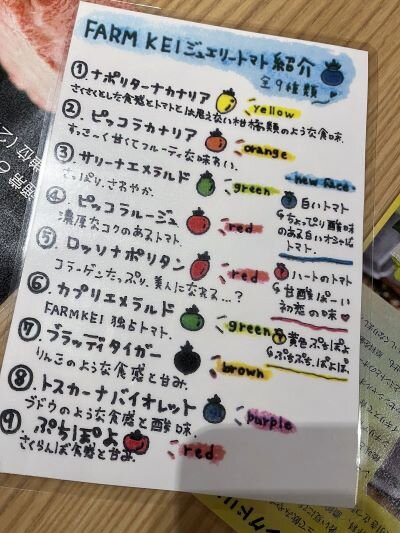 FARM KEI ジュエリートマト紹介
全9種類
① ナポリターナカナリア yellow
さくさくとした食感とトマトとは思えない柑橘類のような食味.
②. ピッコラカナリア orange
すっきり 甘くてフルーティな味わい.
③ サリーナエメラルド green
さっぱり. さわやか.
④. ピッコラルージュ red
濃厚なコクのあるトマト.
⑤. ロッソナポリタン red
コラーゲンたっぷり. 美人になれる...?
⑥ カプリエメラルド green
FARMKEI 独占トマト.
⑦. ブラッディタイガー brown
りんごのような食感と甘み.
⑧. トスカーナバイオレット purple
ブドウのような食感と酸味.
⑨. ぷちぽよ red
さくらんぼ食感と甘み.
new face
白いトマト
ちょっぴり酸味
のある白いオシャレ
トマト.
ハートのトマト
甘酸っぱーい
初恋の味♥
黄色ぷちぽよ
ぷちぷち.ぽよぽよ.